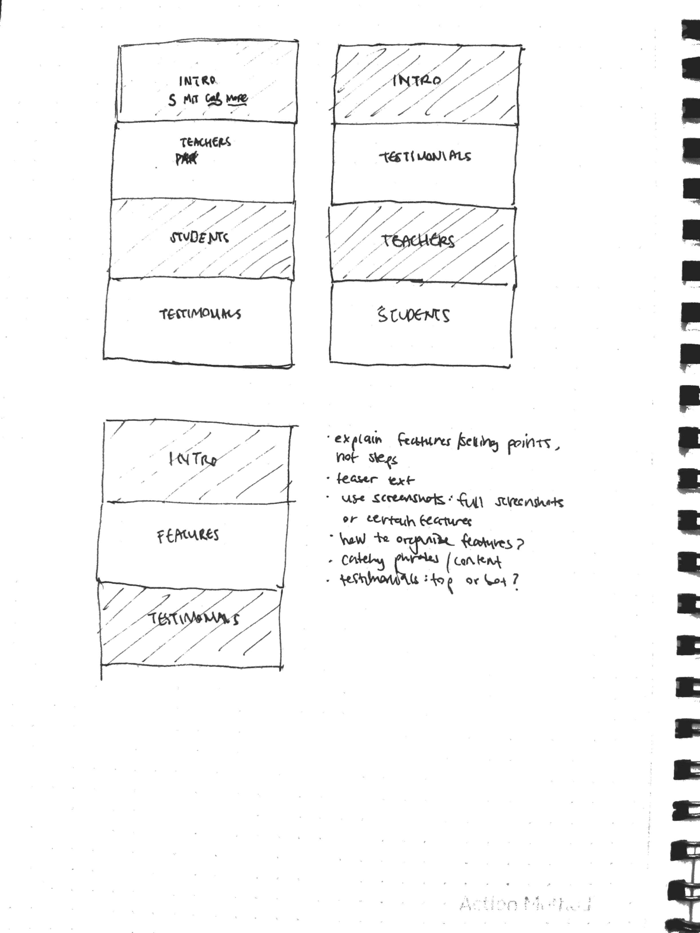 INTRO
TEACHERS
STUDENTS
TESTIMONIALS
INTRO
TESTIMONIALS
TEACHERS
STUDENTS
INTRO
FEATURES
TESTIMONIALS
· explain features/selling points,
not steps
· teaser text
· use screenshots: full screenshots
or certain features
· how to organize features?
· catchy phrases/content
· testimonials: top or bot?
Action Method